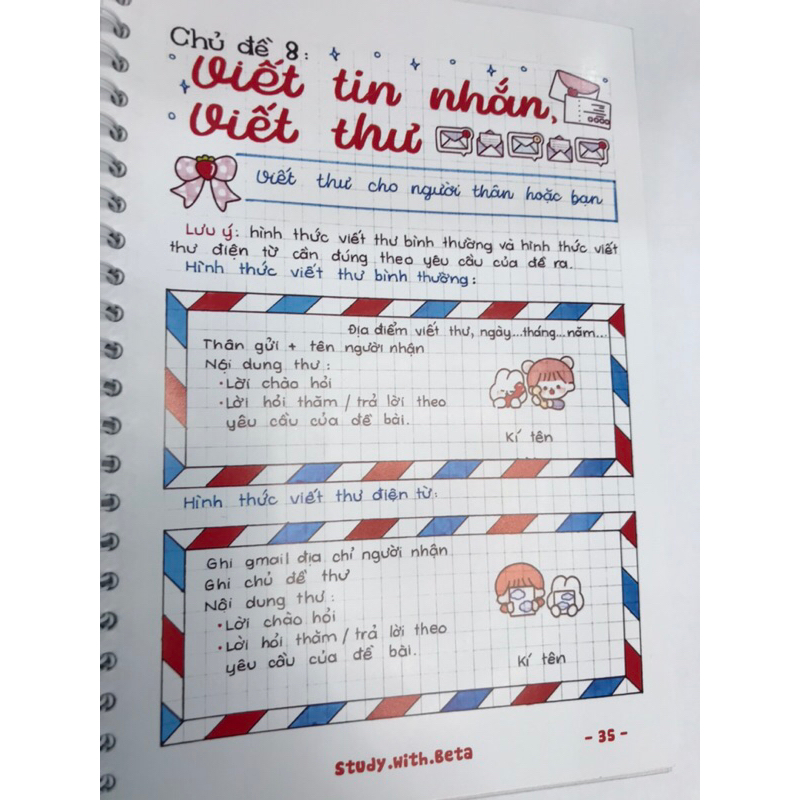 Chủ đề 8:
Viết tin nhắn,
Viết thư
Viết thư cho người thân hoặc bạn
Lưu ý: hình thức viết thư bình thường và hình thức viết
thư điện từ cần đúng theo yêu cầu của đề ra.
Hình thức viết thư bình thường:
Địa điểm viết thư, ngày...tháng...năm...
Thân gửi + tên người nhận
Nội dung thư:
•Lời chào hỏi
•Lời hỏi thăm / trả lời theo
yêu cầu của đề bài.
Kí tên
Hình thức viết thư điện từ:
Ghi gmail địa chỉ người nhận
Ghi chủ đề thư
Nội dung thư:
•Lời chào hỏi
•Lời hỏi thăm / trả lời theo
yêu cầu của đề bài.
Kí tên
Study.With.Beta
- 35 -